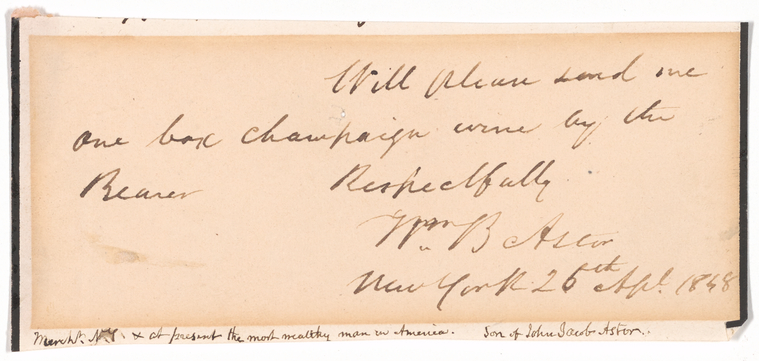 Will please send me
one box champaign wine by the
Bearer Respectfully
Wm B Astor
New York 26th Apl. 1848
Mercht. N.Y. & at present the most wealthy man in America. Son of John Jacob Astor.